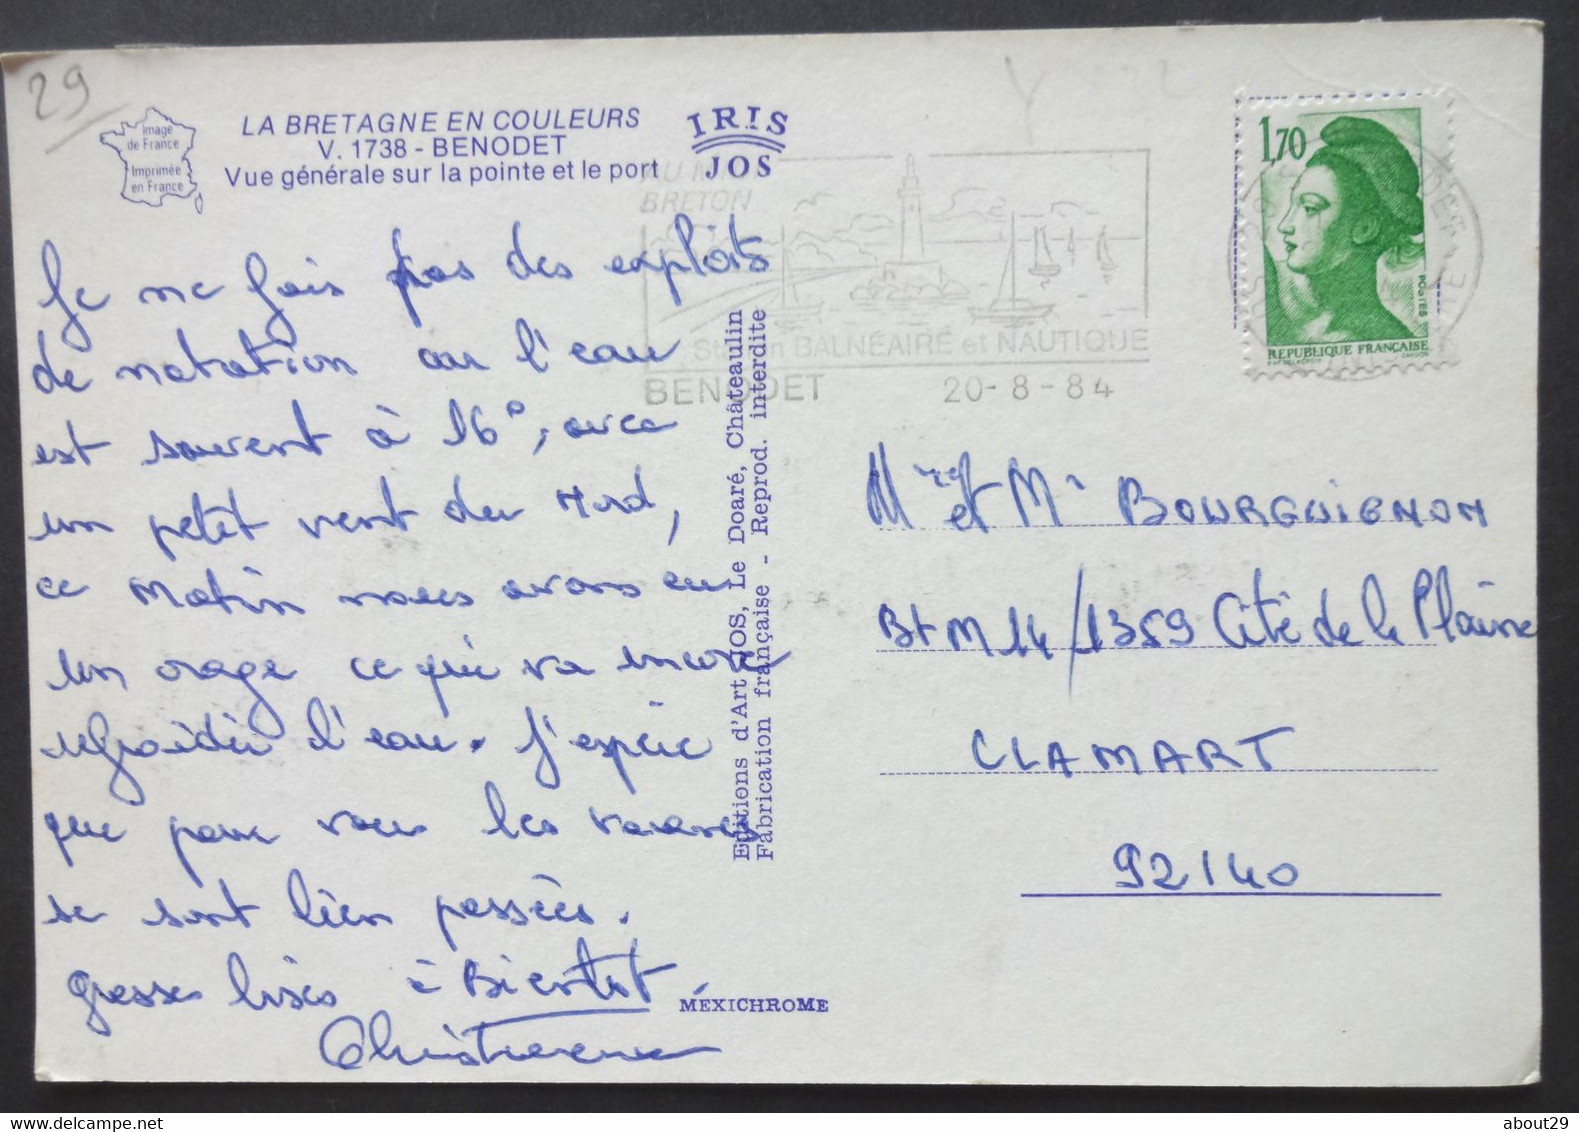 29
Image
de France
Imprimée
en France
LA BRETAGNE EN COULEURS
V. 1738 - BENODET
Vue générale sur la pointe et le port
IRIS
JOS
Je ne fais pas des exploits
de natation car l'eau
est souvent à 16°, avec
un petit vent du Nord,
ce matin nous avons eu
un orage ce qui va encore
refroidir l'eau. J'espère
que pour vous les vacances
se sont bien passées.
grosses bises à Bientôt.
Christiane
Editions d'Art JOS, Le Doaré, Châteaulin
Fabrication française - Reprod. interdite
MEXICHROME
BRETON
Station BALNÉAIRE et NAUTIQUE
BENODET 20-8-84
1,70
POSTES
REPUBLIQUE FRANÇAISE
Mme et Mr BOURGUIGNON
Bt M14/1359 Cité de la Plaine
CLAMART
92140
about29